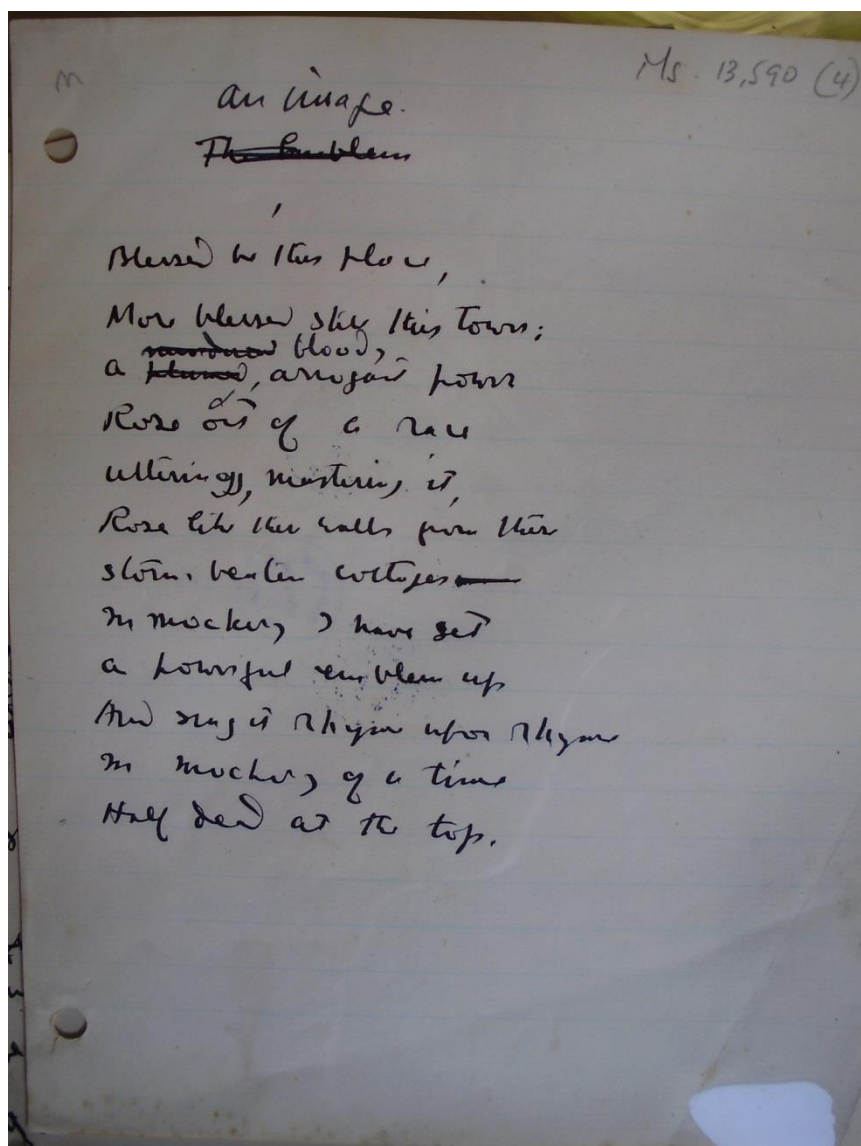 Ms. 13,590 (4)
An image.
The Emblem
Blessed be this place,
More blessed still this tower;
blood,
A , arrogant power
Rose out of a race
Uttering, mastering it,
Rose like these walls from these
storm-beaten cottages —
In mockery I have set
A powerful emblem up
And sing it rhyme upon rhyme
In mockery of a time
Half dead at the top.